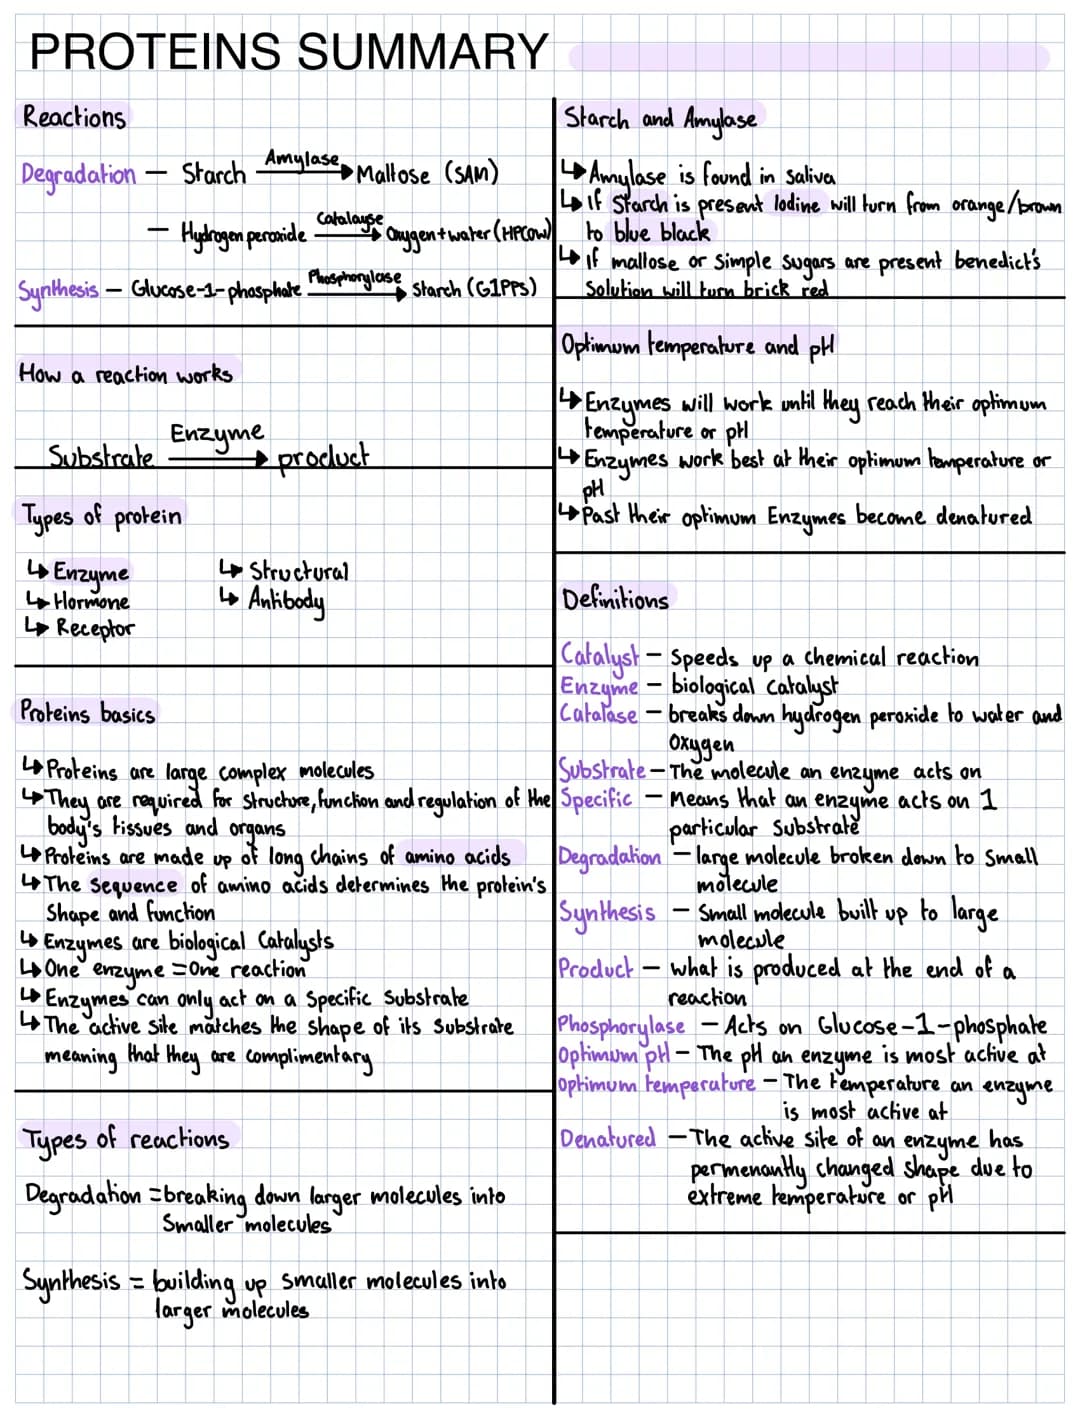 PROTEINS SUMMARY
Reactions
Degradation — Starch Amylase → Maltose (SAM)
— Hydrogen peroxide Catalayse → Oxygen + water (HPCOW)
Synthesis — Glucose-1-phosphate Phosphorylase → Starch (G1PPS)
How a reaction works
Substrate Enzyme → product
Types of protein
↳ Enzyme
↳ Hormone
↳ Receptor
↳ Structural
↳ Antibody
Proteins basics
↳ Proteins are large complex molecules
↳ They are required for structure, function and regulation of the
body's tissues and organs
↳ Proteins are made up of long chains of amino acids
↳ The sequence of amino acids determines the protein's
Shape and function
↳ Enzymes are biological catalysts
↳ One enzyme = One reaction
↳ Enzymes can only act on a specific substrate
↳ The active site matches the shape of its substrate
meaning that they are complimentary
Types of reactions
Degradation = breaking down larger molecules into
smaller molecules
Synthesis = building up smaller molecules into
larger molecules
Starch and Amylase
↳ Amylase is found in saliva
↳ If Starch is present Iodine will turn from orange/brown
to blue black
↳ If maltose or simple sugars are present benedict's
solution will turn brick red
Optimum temperature and pH
↳ Enzymes will work until they reach their optimum
temperature or pH
↳ Enzymes work best at their optimum temperature or
pH
↳ Past their optimum Enzymes become denatured
Definitions
Catalyst — Speeds up a chemical reaction
Enzyme — biological catalyst
Catalase — breaks down hydrogen peroxide to water and
Oxygen
Substrate — The molecule an enzyme acts on
Specific — Means that an enzyme acts on 1
particular substrate
Degradation — large molecule broken down to small
molecule
Synthesis — Small molecule built up to large
molecule
Product — what is produced at the end of a
reaction
Phosphorylase — Acts on Glucose-1-phosphate
Optimum pH — The pH an enzyme is most active at
Optimum temperature — The temperature an enzyme
is most active at
Denatured — The active site of an enzyme has
permenantly changed shape due to
extreme temperature or pH